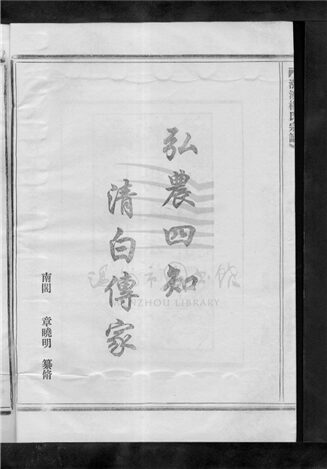 弘農四知
清白傳家
南閣 章曉明 纂脩
WENZHOU LIBRARY